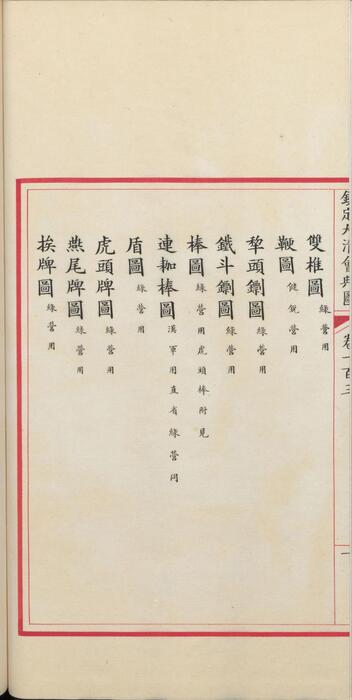 欽定大清會典圖
卷一百三
一
雙椎圖 綠營用
鞭圖 健銳營用
犂頭鐏圖 綠營用
鐵斗鐏圖 綠營用
棒圖 綠營用虎頭棒附見
連耞棒圖 漢軍用直省綠營同
盾圖 綠營用
虎頭牌圖 綠營用
燕尾牌圖 綠營用
挨牌圖 綠營用